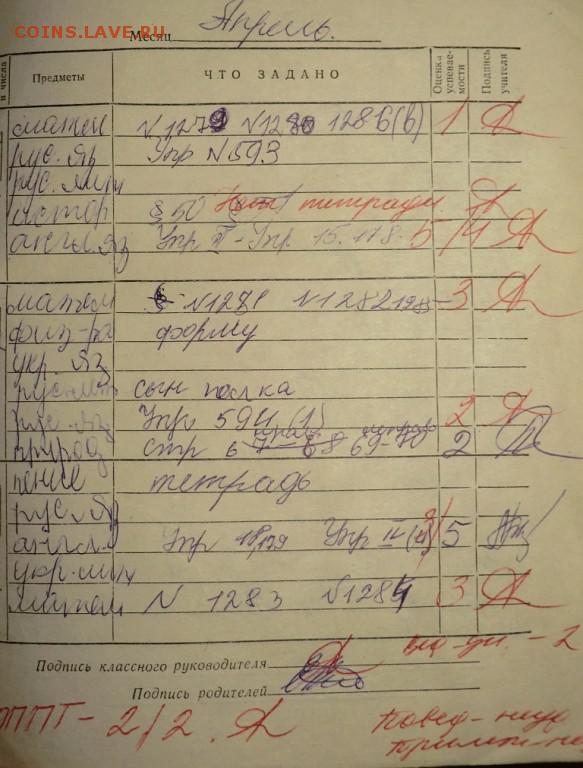 COINS.LAVE.RU
Месяц Апрель.
и числа Предметы ЧТО ЗАДАНО Оценка успевае- мости Подпись учителя
матем №1279 №1280 1286(в) 1
рус. яз Упр №593
рус. лит
истор § 50 Нет тетради
англ. яз Упр 15. 5/4
матем №1281 №1282 3
физ-ра форму
укр. яз
рус. лит сын полка
рус. яз. Упр 594 2
природ стр 69-70 2
пение тетрадь
рус. яз
англ. Упр 18,19 Упр IV 5
укр. лит
матем N 1283 №1284 3
Подпись классного руководителя
Подпись родителей
- 2
ОППТ - 2/2.
Повед - неуд